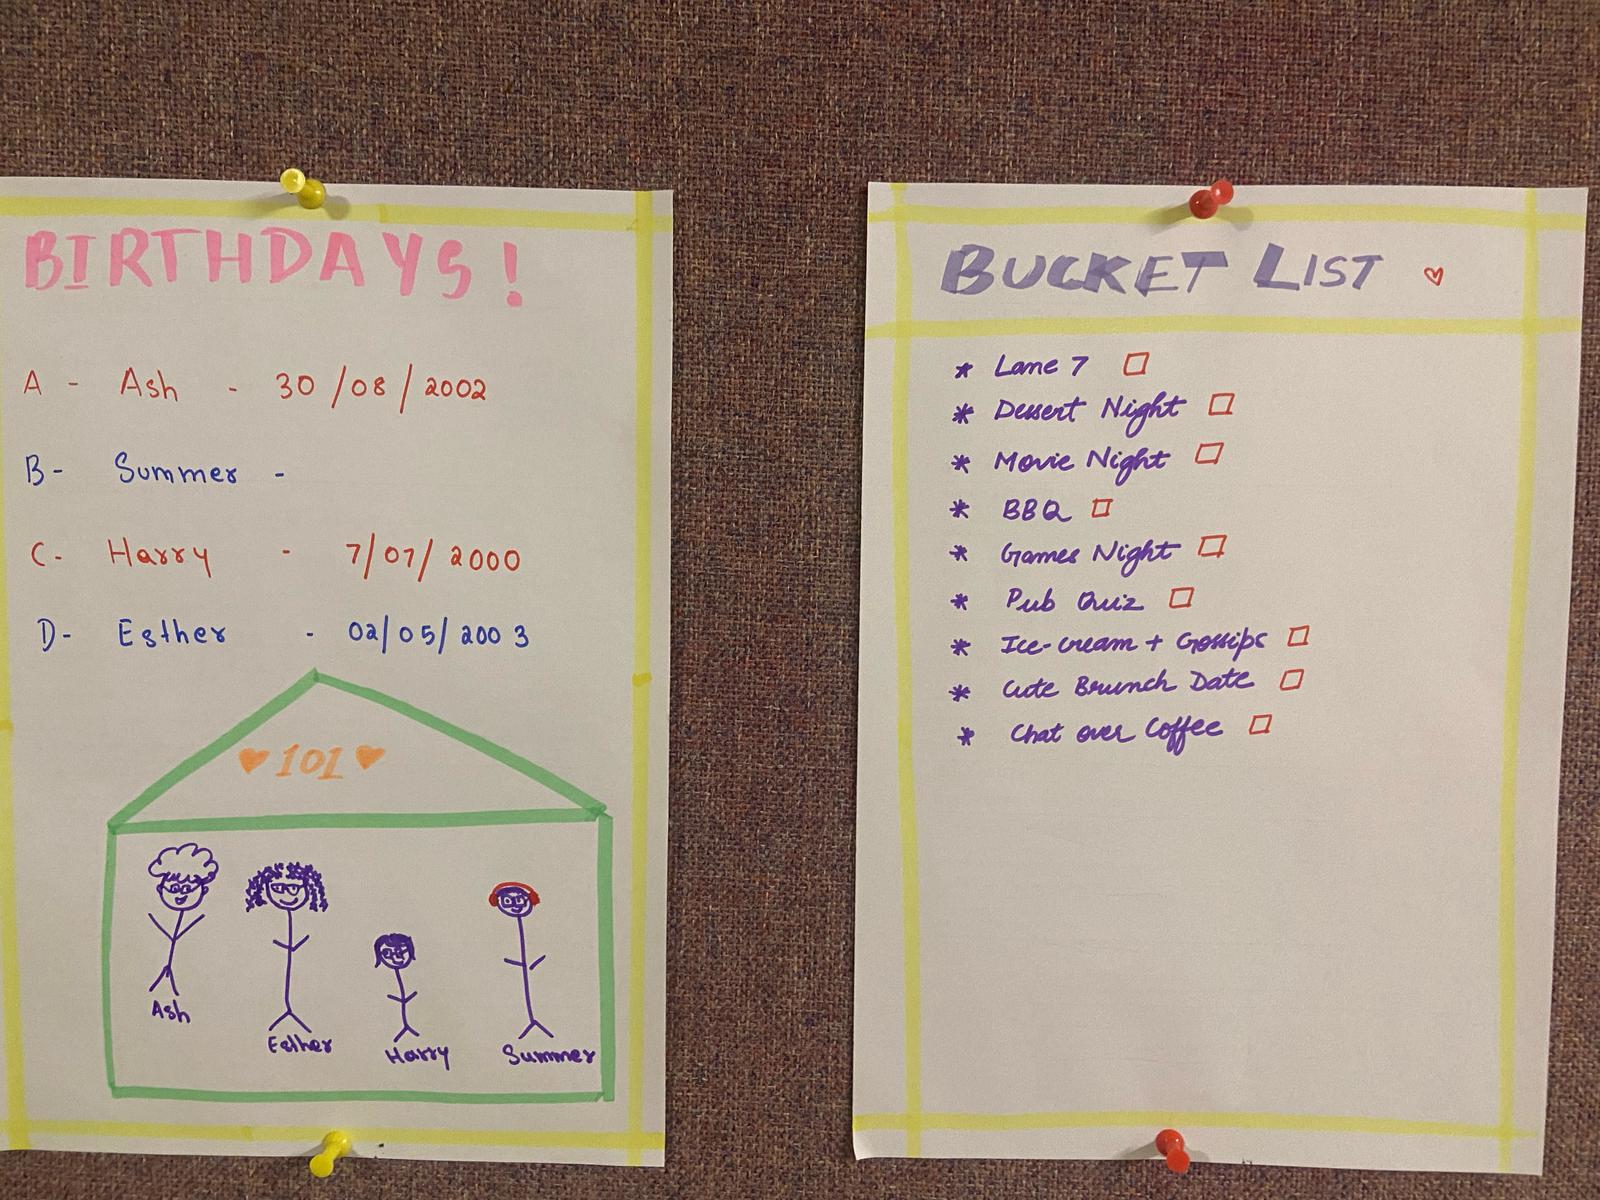 BIRTHDAYS!
A - Ash - 30/08/2002
B- Summer -
C- Harry - 7/07/2000
D- Esther - 02/05/2003
♥ 101 ♥
Ash
Esther
Harry
Summer
BUCKET LIST ♡
* Lane 7 ☐
* Dessert Night ☐
* Movie Night ☐
* BBQ ☐
* Games Night ☐
* Pub Quiz ☐
* Ice-cream + Gossips ☐
* Cute Brunch Date ☐
* Chat over Coffee ☐